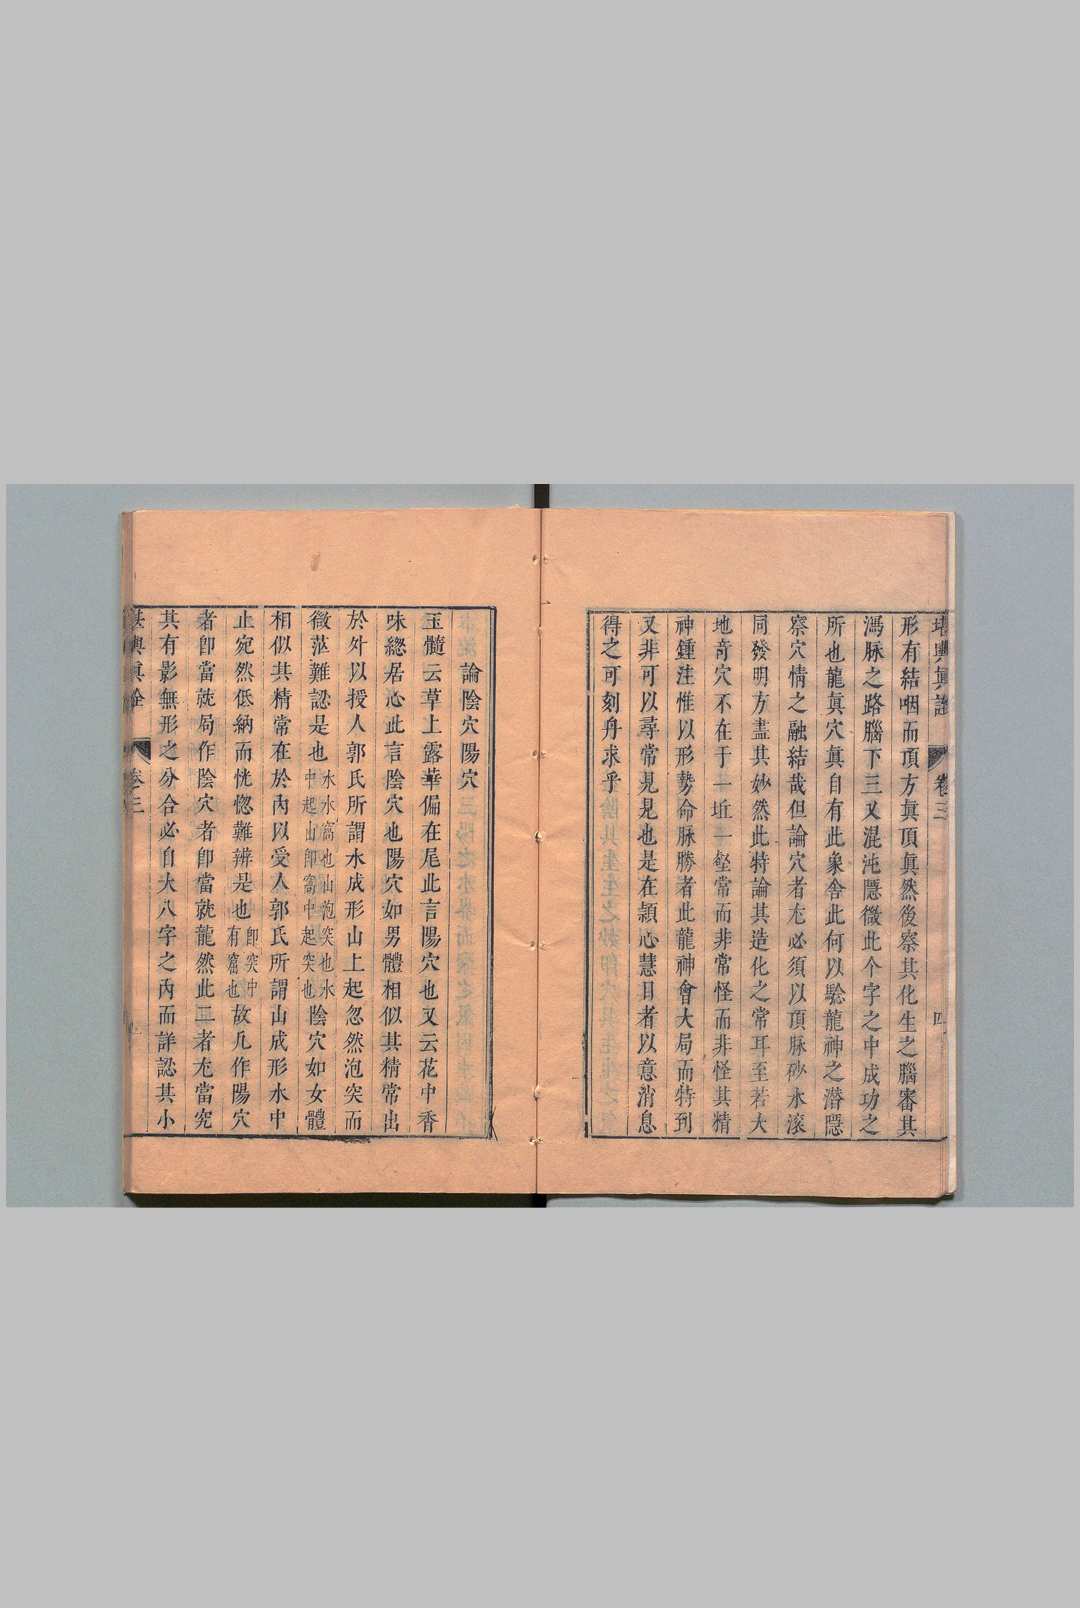 堪輿眞詮
卷三
四
形有結咽而頂方眞頂眞然後察其化生之腦審其
馮脉之路腦下三叉混沌隱微此个字之中成功之
所也龍眞穴眞自有此象舍此何以騐龍神之潜隱
察穴情之融結哉但論穴者尤必須以頂脉砂水滚
同發明方盡其妙然此特論其造化之常耳至若大
地奇穴不在于一坵一壑常而非常怪而非怪其精
神鍾注惟以形勢命脉勝者此龍神會大局而特到
又非可以尋常見見也是在頴心慧目者以意消息
得之可刻舟求乎
論陰穴陽穴
玉髓云草上露華偏在尾此言陽穴也又云花中香
味總居心此言陰穴也陽穴如男體相似其精常出
於外以授人郭氏所謂水成形山上起忽然泡突而
微茫難認是也水水窩也山泡突也水
中起山卽窩中起突也陰穴如女體
相似其精常在於內以受人郭氏所謂山成形水中
止宛然低納而恍惚難辨是也卽突中
有窩也故凡作陽穴
者卽當就局作陰穴者卽當就龍然此二者尤當究
其有影無形之分合必自大八字之內而詳認其小
堪輿眞詮
卷三